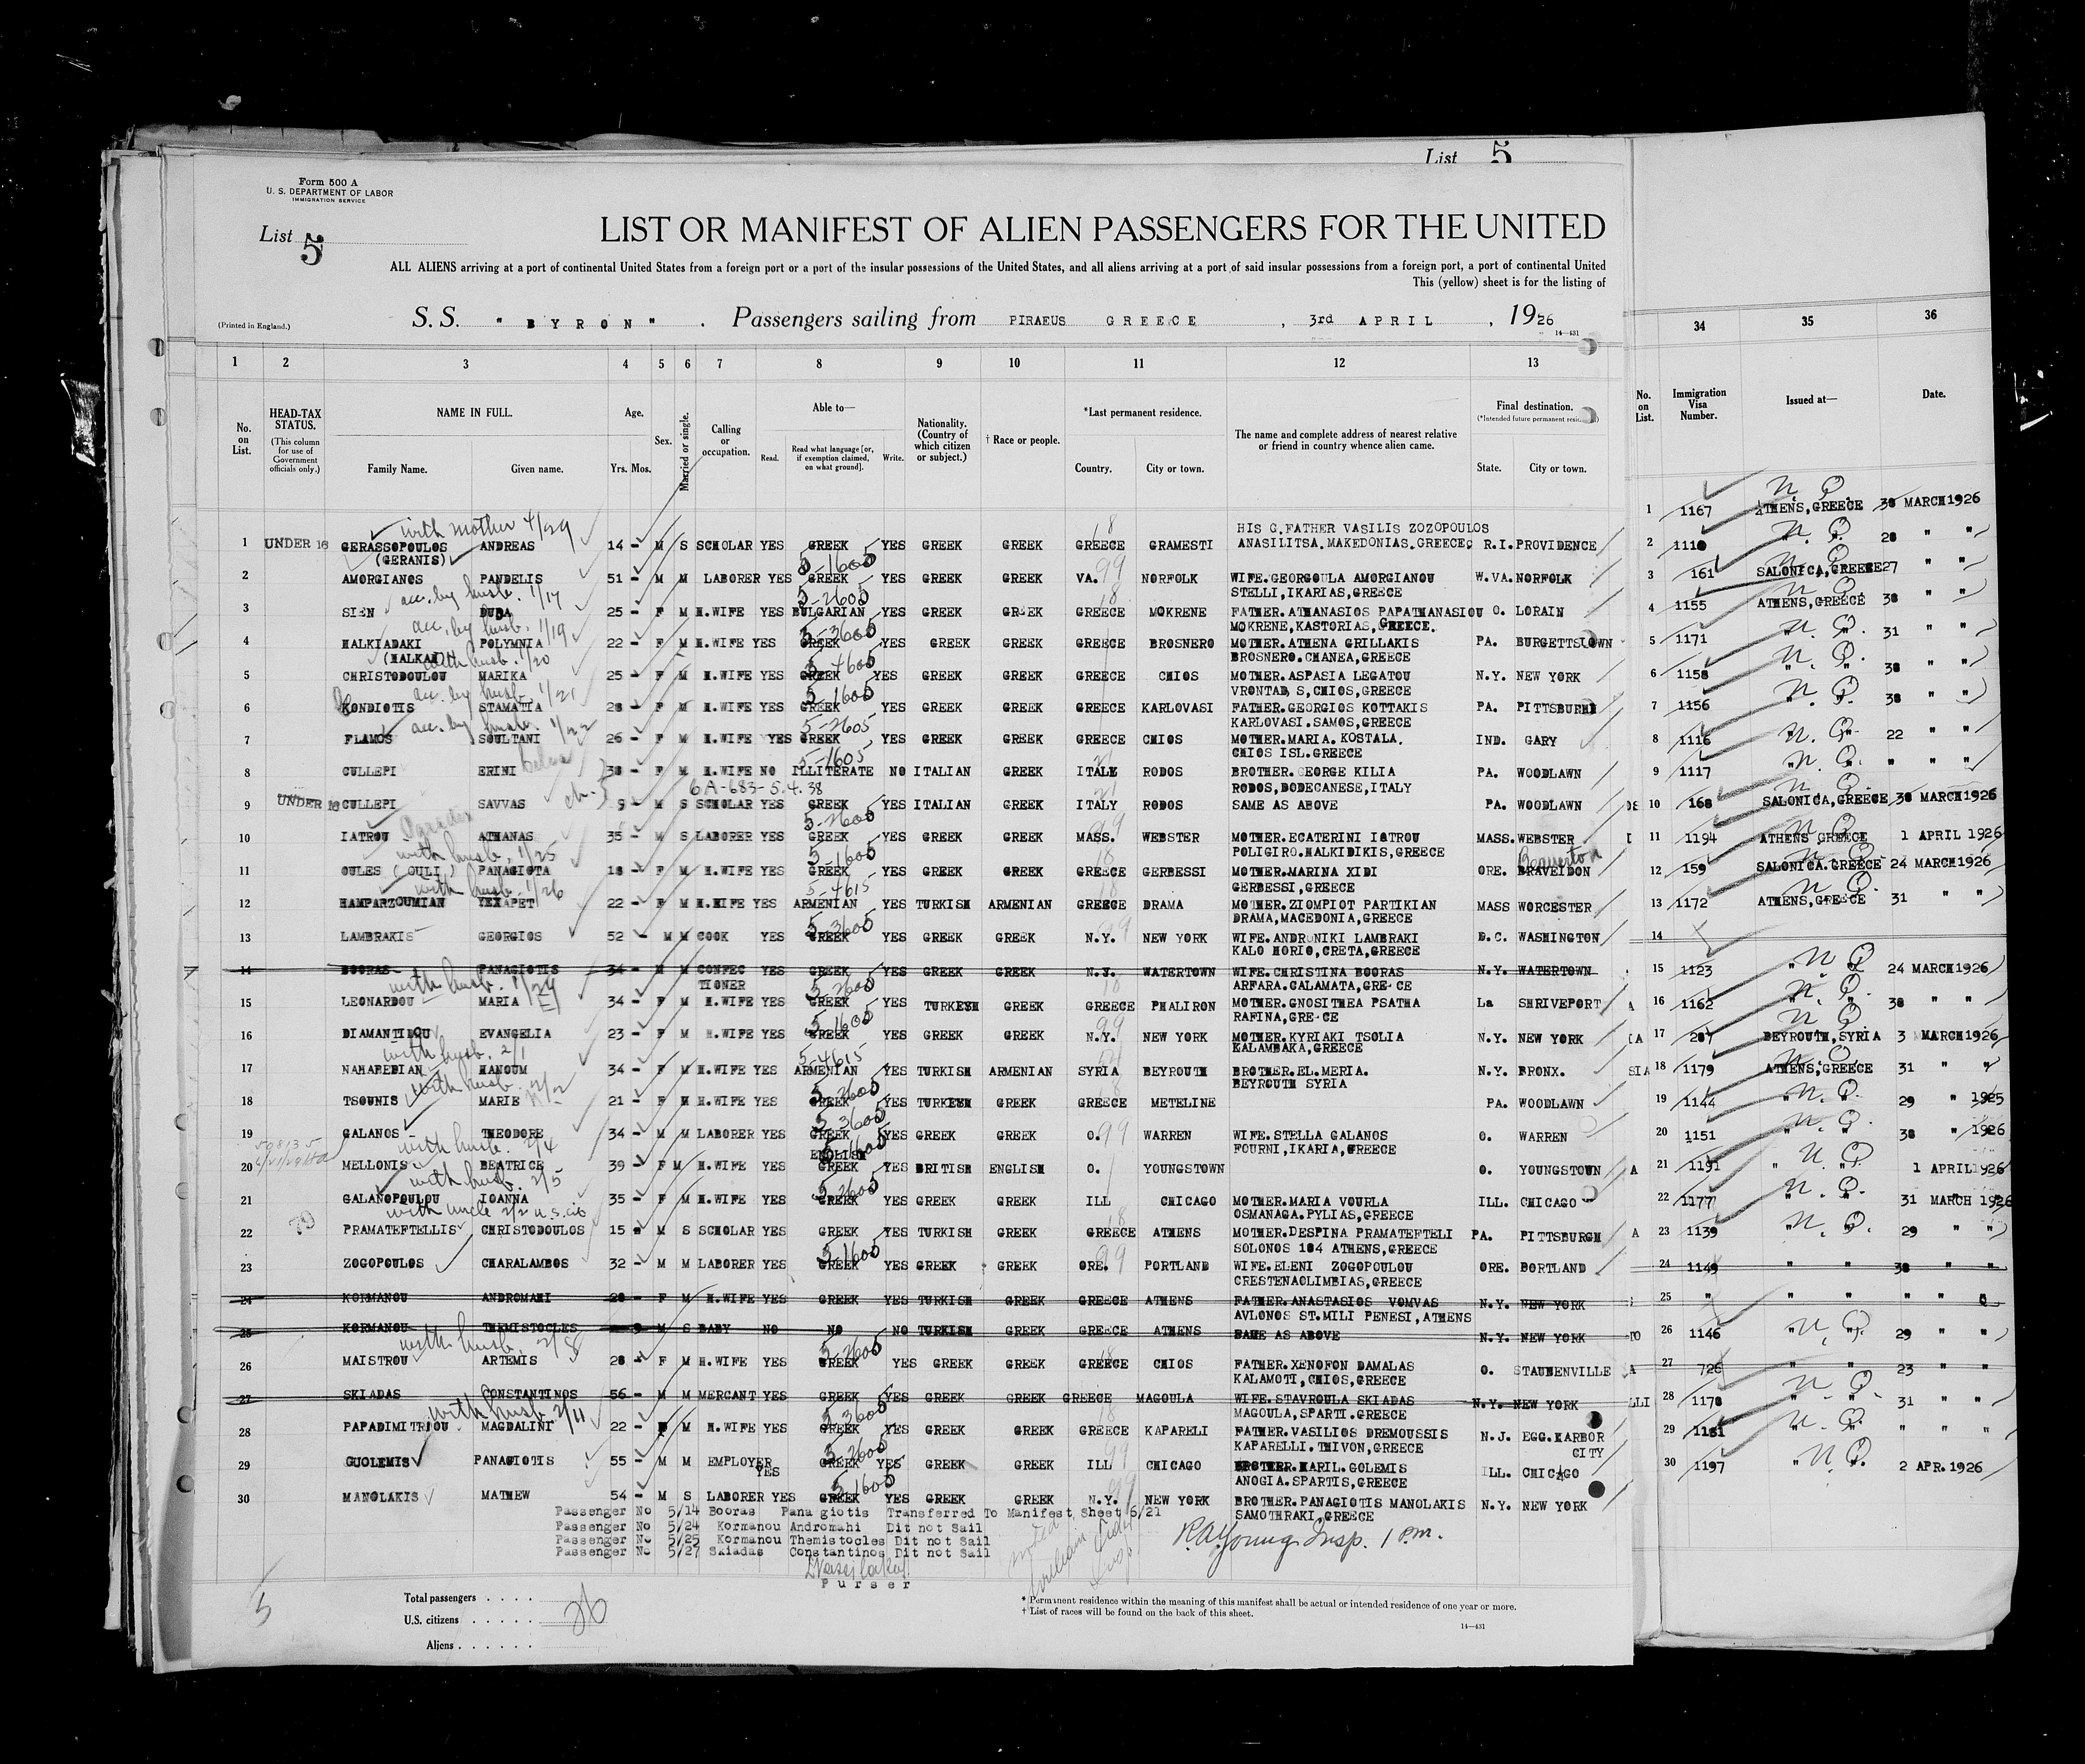 List 5
Form 500 A
U. S. DEPARTMENT OF LABOR
IMMIGRATION SERVICE
List 5
LIST OR MANIFEST OF ALIEN PASSENGERS FOR THE UNITED
ALL ALIENS arriving at a port of continental United States from a foreign port or a port of the insular possessions of the United States, and all aliens arriving at a port of said insular possessions from a foreign port, a port of continental United
This (yellow) sheet is for the listing of
(Printed in England.) S. S. "BYRON". Passengers sailing from PIRAEUS GREECE, 3rd APRIL, 1926
14—431
1 2 3 4 5 6 7 8 9 10 11 12 13 34 35 36
No. on List. HEAD-TAX STATUS. (This column for use of Government officials only.) NAME IN FULL. Family Name. Given name. Age. Yrs. Mos. Sex. Married or single. Calling or occupation. Able to— Read. Read what language [or, if exemption claimed, on what ground]. Write. Nationality. (Country of which citizen or subject.) † Race or people. *Last permanent residence. Country. City or town. The name and complete address of nearest relative or friend in country whence alien came. Final destination. State. City or town. No. on List. Immigration Visa Number. Issued at— Date.
with mother 4/29
1 UNDER 16 GERASSOPOULOS ANDREAS 14 - M S SCHOLAR YES GREEK YES GREEK GREEK GREECE GRAMESTI HIS G.FATHER VASILIS ZOZOPOULOS
(GERANIS) ANASILITSA.MAKEDONIAS.GREECE. R.I. PROVIDENCE
2 AMORGIANOS PANDELIS 51 - M M LABORER YES GREEK YES GREEK GREEK VA. NORFOLK WIFE.GEORGOULA AMORGIANOU W.VA. NORFOLK
STELLI,IKARIAS,GREECE
acc. by husb. 1/17
3 SIEN DUBA 25 - F M H.WIFE YES BULGARIAN YES GREEK GREEK GREECE MOKRENE FATHER.ATHANASIOS PAPATHANASIOU O. LORAIN
MOKRENE,KASTORIAS,GREECE.
acc. by husb. 1/19
4 HALKIADAKI POLYMNIA 22 - F M H.WIFE YES GREEK YES GREEK GREEK GREECE BROSNERO MOTHER.ATHENA GRILLAKIS PA. BURGETTSTOWN
BROSNERO.CHANEA,GREECE
with husb. 1/20
5 CHRISTODOULOU MARIKA 25 - F M H.WIFE YES GREEK YES GREEK GREEK GREECE CHIOS MOTHER.ASPASIA LEGATOU N.Y. NEW YORK
VRONTAD S,CHIOS,GREECE
acc. by husb. 1/21
6 KONDIOTIS STAMATIA 28 - F M H.WIFE YES GREEK YES GREEK GREEK GREECE KARLOVASI FATHER.GEORGIOS KOTTAKIS PA. PITTSBURGH
KARLOVASI.SAMOS,GREECE
acc. by husb. 1/22
7 FLAMOS SOULTANI 26 - F M H.WIFE YES GREEK YES GREEK GREEK GREECE CHIOS MOTHER.MARIA.KOSTALA. IND. GARY
CHIOS ISL.GREECE
8 CULLEPI ERINI 38 - F M H.WIFE NO ILLITERATE NO ITALIAN GREEK ITALY RODOS BROTHER.GEORGE KILIA PA. WOODLAWN
RODOS,DODECANESE,ITALY
6A-683-5.4.38
9 UNDER 16 CULLEPI SAVVAS 9 - M S SCHOLAR YES GREEK YES ITALIAN GREEK ITALY RODOS SAME AS ABOVE PA. WOODLAWN
10 IATROU ATHANAS 35 - M S LABORER YES GREEK YES GREEK GREEK MASS. WEBSTER MOTHER.ECATERINI IATROU MASS. WEBSTER
POLIGIRO.HALKIDIKIS,GREECE
with husb. 1/25
11 OULES (OULI) PANAGIOTA 18 - F M H.WIFE YES GREEK YES GREEK GREEK GREECE GERBESSI MOTHER.MARINA XIDI ORE. BRAVEIDON Beaverton
GERBESSI,GREECE
with husb. 1/26
12 HAMPARZOUMIAN YEXAPET 22 - F M H.WIFE YES ARMENIAN YES TURKISH ARMENIAN GREECE DRAMA MOTHER.ZIOMPIOT PARTIKIAN MASS WORCESTER
DRAMA,MACEDONIA,GREECE
13 LAMBRAKIS GEORGIOS 52 - M M COOK YES GREEK YES GREEK GREEK N.Y. NEW YORK WIFE.ANDRONIKI LAMBRAKI D.C. WASHINGTON
KALO HORIO,CRETA,GREECE
14 BOORAS PANAGIOTIS 34 - M M CONFEC YES GREEK YES GREEK GREEK N.Y. WATERTOWN WIFE.CHRISTINA BOORAS N.Y. WATERTOWN
TIONER ARFARA.CALAMATA,GREECE
with husb. 1/29
15 LEONARDOU MARIA 34 - F M H.WIFE YES GREEK YES TURKISH GREEK GREECE PHALIRON MOTHER.GNOSITHEA PSATHA La SHRIVEPORT
RAFINA,GREECE
16 DIAMANTIDOU EVANGELIA 23 - F M H.WIFE YES GREEK YES GREEK GREEK N.Y. NEW YORK MOTHER.KYRIAKI TSOLIA N.Y. NEW YORK
KALAMBAKA,GREECE
with husb. 2/1
17 NAHABEDIAN HANOUM 34 - F M H.WIFE YES ARMENIAN YES TURKISH ARMENIAN SYRIA BEYROUTH BROTHER.EL.MERIA. N.Y. BRONX.
BEYROUTH SYRIA
with husb. 2/2
18 TSOUNIS MARIE 21 - F M H.WIFE YES GREEK YES TURKISH GREEK GREECE METELINE PA. WOODLAWN
19 GALANOS THEODORE 34 - M M LABORER YES GREEK YES GREEK GREEK O. WARREN WIFE.STELLA GALANOS O. WARREN
FOURNI,IKARIA,GREECE
with husb. 2/4
20 MELLONIS BEATRICE 39 - F M H.WIFE YES ENGLISH GREEK YES BRITISH ENGLISH O. YOUNGSTOWN O. YOUNGSTOWN
with husb. 2/5
21 GALANOPOULOU IOANNA 35 - F M H.WIFE YES GREEK YES GREEK GREEK ILL CHICAGO MOTHER.MARIA VOURLA ILL. CHICAGO
OSMANAGA.PYLIAS,GREECE
with uncle 2/2 U.S. cit
22 PRAMATEFTELLIS CHRISTODOULOS 15 M S SCHOLAR YES GREEK YES TURKISH GREEK GREECE ATHENS MOTHER.DESPINA PRAMATEFTELI PA. PITTSBURGH
SOLONOS 184 ATHENS,GREECE
23 ZOGOPOULOS CHARALAMBOS 32 - M M LABORER YES GREEK YES GREEK GREEK ORE. PORTLAND WIFE.ELENI ZOGOPOULOU ORE. PORTLAND
CRESTENAOLIMBIAS,GREECE
24 KORMANOU ANDROMAHI 28 - F M H.WIFE YES GREEK YES TURKISH GREEK GREECE ATHENS FATHER.ANASTASIOS VOMVAS N.Y. NEW YORK
AVLONOS ST.MILI PENESI,ATHENS
25 KORMANOU THEMISTOCLES - 9 M S BABY NO NO NO TURKISH GREEK GREECE ATHENS SAME AS ABOVE N.Y. NEW YORK
with husb. 2/8
26 MAISTROU ARTEMIS 28 - F M H.WIFE YES GREEK YES GREEK GREEK GREECE CHIOS FATHER.XENOFON DAMALAS O. STAUBENVILLE
KALAMOTI,CHIOS,GREECE
27 SKIADAS CONSTANTINOS 56 - M M MERCANT YES GREEK YES GREEK GREEK GREECE MAGOULA WIFE.STAVROULA SKIADAS N.Y. NEW YORK
MAGOULA,SPARTI.GREECE
with husb. 2/11
28 PAPADIMITRIOU MAGDALINI 22 - F M H.WIFE YES GREEK YES GREEK GREEK GREECE KAPARELI FATHER.VASILIOS DREMOUSSIS N.J. EGG.HARBOR
KAPARELLI.THIVON,GREECE CITY
29 GUOLEMIS PANAGIOTIS 55 - M M EMPLOYER YES GREEK YES GREEK GREEK ILL CHICAGO BROTHER.HARIL.GOLEMIS ILL. CHICAGO
ANOGIA.SPARTIS,GREECE
30 MANOLAKIS MATHEW 54 - M S LABORER YES GREEK YES GREEK GREEK N.Y. NEW YORK BROTHER.PANAGIOTIS MANOLAKIS N.Y. NEW YORK
SAMOTHRAKI,GREECE
Passenger No 5/14 Booras Panagiotis Transferred To Manifest Sheet 6/21
Passenger No 5/24 Kormanou Andromahi Dit not Sail
Passenger No 5/25 Kormanou Themistocles Dit not Sail
Passenger No 5/27 Skiadas Constantinos Dit not Sail
Purser
R.A. Young Insp. 1 P.M.
5
Total passengers
U.S. citizens 26
Aliens
* Permanent residence within the meaning of this manifest shall be actual or intended residence of one year or more.
† List of races will be found on the back of this sheet.
14—431
1 1167 ATHENS,GREECE 30 MARCH 1926
2 1110 " " 28 " "
3 161 SALONICA,GREECE 27 " "
4 1155 ATHENS,GREECE 30 " "
5 1171 " " 31 " "
6 1158 " " 30 " "
7 1156 " " 30 " "
8 1116 " " 22 " "
9 1117 " " " " "
10 168 SALONICA,GREECE 30 MARCH 1926
11 1194 ATHENS GREECE 1 APRIL 1926
12 159 SALONICA.GREECE 24 MARCH 1926
13 1172 ATHENS,GREECE 31 " "
14
15 1123 " " 24 MARCH 1926
16 1162 " " 30 " "
17 207 BEYROUTH,SYRIA 3 MARCH 1926
18 1179 ATHENS,GREECE 31 " "
19 1144 " " 29 " 1925
20 1151 " " 30 " 1926
21 1191 " " 1 APRIL 1926
22 1177 " " 31 MARCH 1926
23 1139 " " 29 " "
24 1149 " " 30 " "
25 " " " " " "
26 1146 " " 29 " "
27 726 " " 23 " "
28 1170 " " 31 " "
29 1181 " " " " "
30 1197 " " 2 APR. 1926